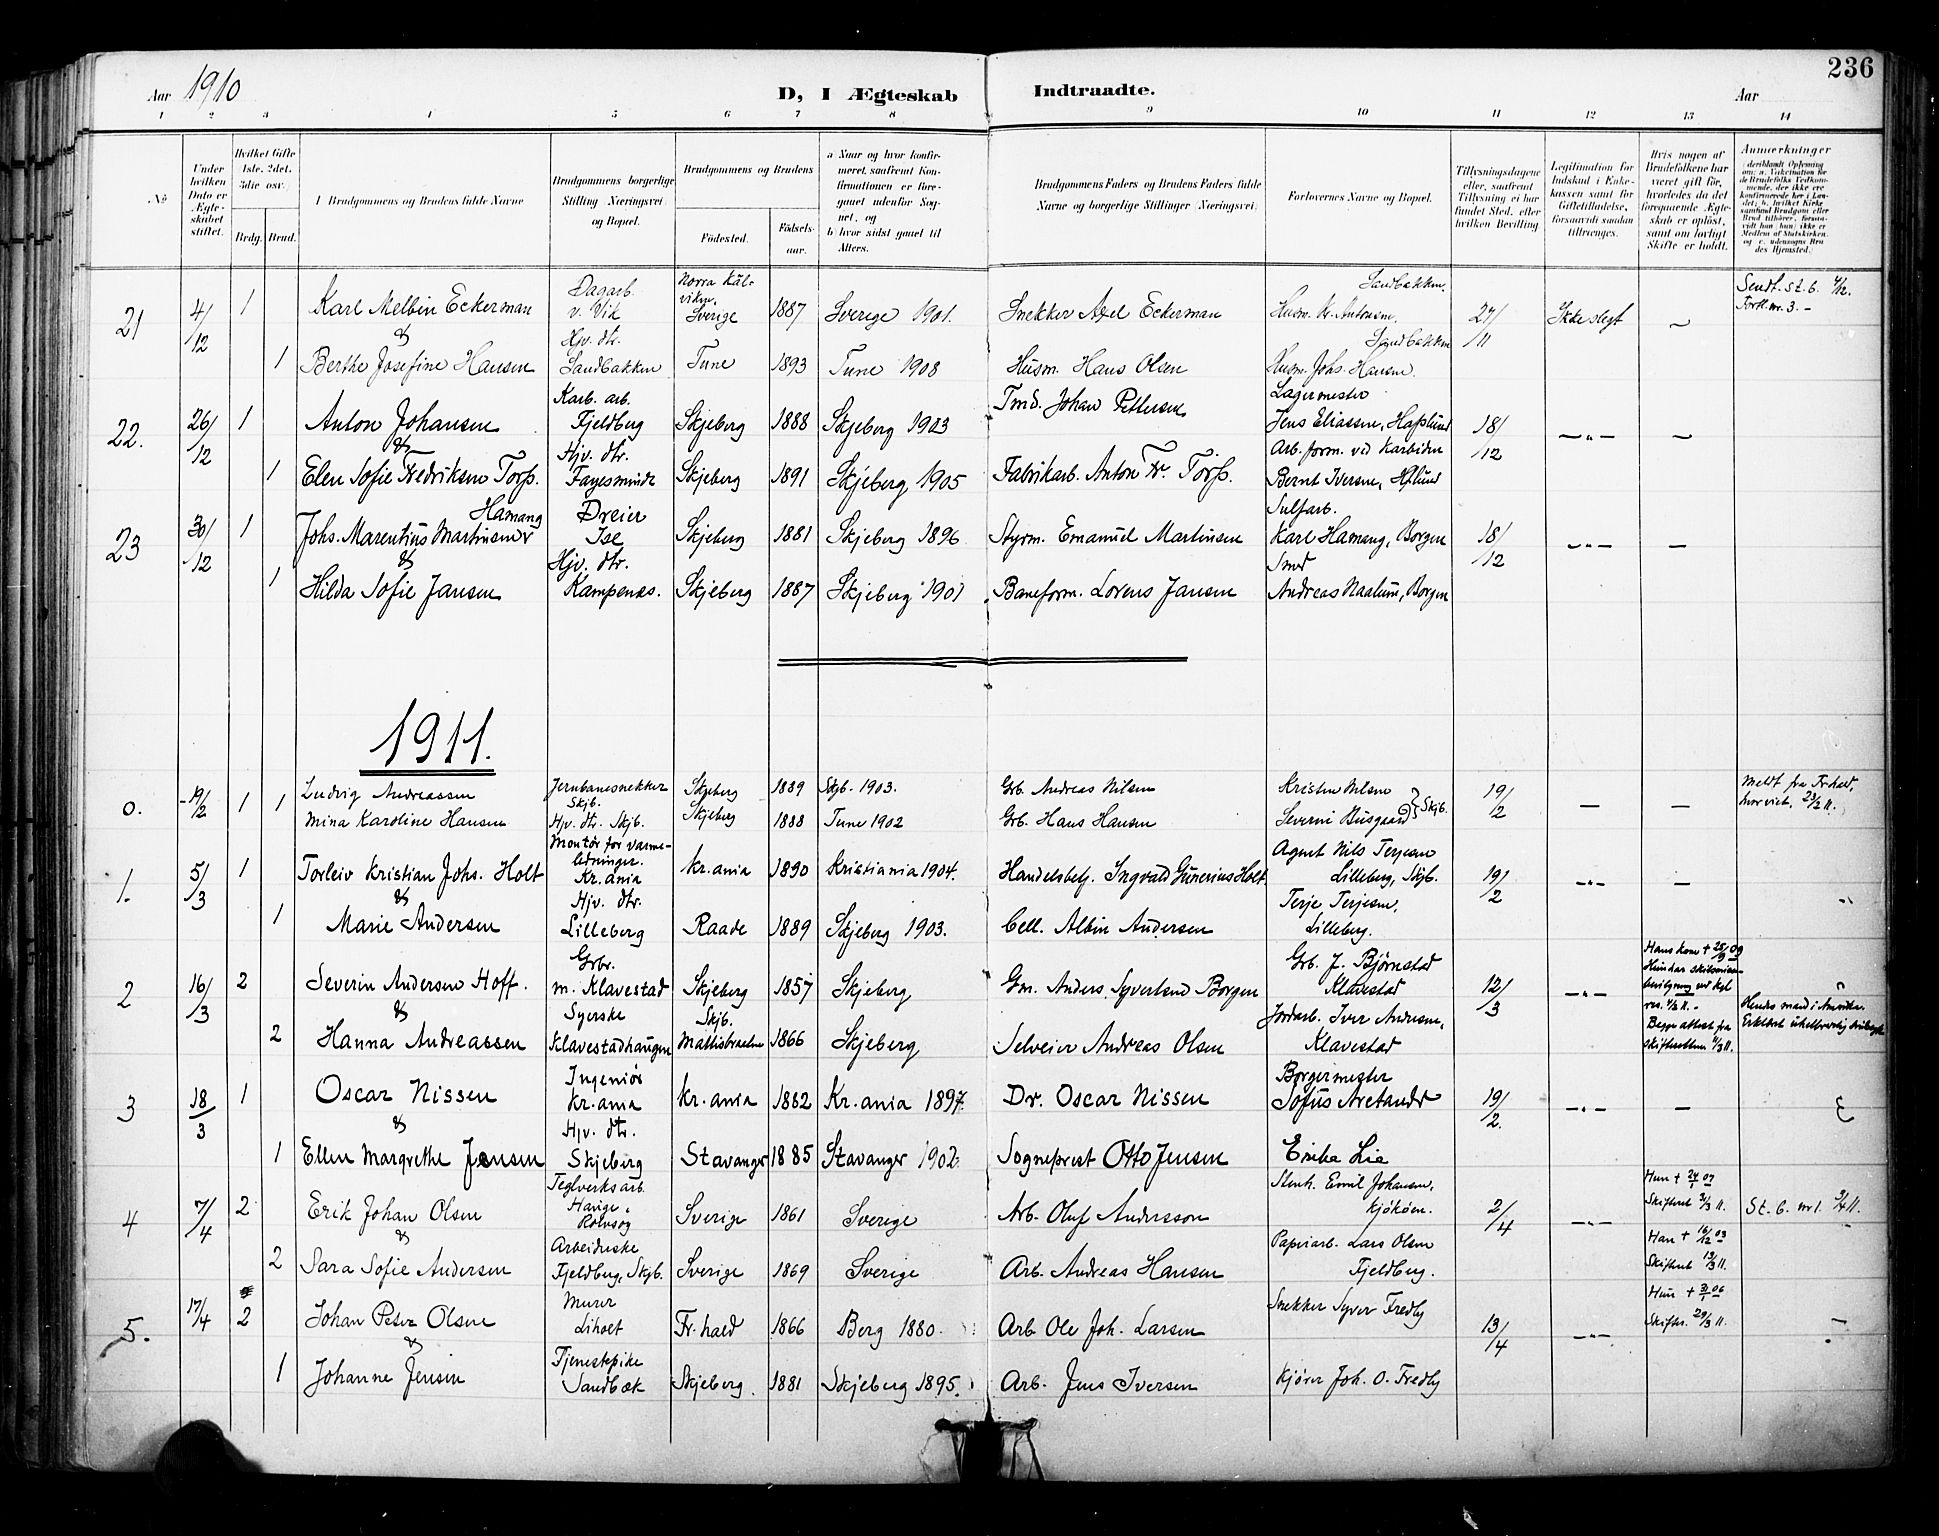 236
Aar 1910
D, I Ægteskab Indtraadte.
Aar
1 2 3 4 5 6 7 8 9 10 11 12 13 14
No
Under hvilken Dato er Ægteskabet stiftet.
Hvilket Gifte 1ste, 2det, 3die osv.
Brdg. Brud.
Brudgommens og Brudens fulde Navne
Brudgommens borgerlige Stilling (Næringsvei) og Bopæl.
Brudgommens og Brudens
Födested.
Födselsaar.
a) Naar og hvor konfirmeret, saafremt Konfirmationen er foregaaet udenfor Sognet, og
b) hvor sidst gaaet til Alters.
Brudgommens Faders og Brudens Faders fulde Navne og borgerlige Stillinger (Næringsvei)
Forlovernes Navne og Bopæl.
Tillysningsdagene eller, saafremt Tillysning ei har fundet Sted, efter hvilken Bevilling
Legitimation for Indskud i Enkekassen samt for Giftetilladelse, forsaavidt saadan tiltrænges.
Hvis nogen af Brudefolkene har været gift før, hvorledes da det foregaaende Ægteskab er oplöst, samt om lovligt Skifte er holdt.
Anmærkninger
21 4/12 1 Karl Melbin Eckerman Dagarb. v. Vik Norra Kälviken, Sverige 1887 Sverige 1901. Snekker Axel Eckerman Husm. Kr. Antonsen, Sandbakken. 27/11 Ikke slegt — Sendt. st. b. Fortl. nr. 3. —
&
1 Berthe Josefine Hansen Hjv. dtr. Sandbakken Tune 1893 Tune 1908 Husm. Hans Olsen Husm. Johs. Hansen. Sandbakken
22. 26/12 1 Anton Johansen Karb. arb. Fjeldberg Skjeberg 1888 Skjeberg 1903 Tmd. Johan Pettersen Lagermester Jens Eliassen, Hafslund 18/12 —"— —
&
1 Elen Sofie Fredriksen Torp. Hjv. dtr. Fagesminde Skjeberg 1891 Skjeberg 1905 Fabrikarb. Anton Fr. Torp. Arb. form. ved Karbiden Bernt Iversen, Hflund
23 30/12 1 Johs. Marentius Martinsen Hamang Dreier Ise Skjeberg 1881 Skjeberg 1896 Styrm. Emanuel Martinsen Sulfarb. Karl Hamang, Borgen 18/12 —"— —
&
1 Hilda Sofie Jansen Hjv. dtr. Kampenæs. Skjeberg 1887 Skjeberg 1901 Baneform. Lorens Jansen Smed Andreas Naalum, Borgen
1911.
0. 19/2 1 1 Ludvig Andreassen Jernbanesnekker Skjb. Skjeberg 1889 Skjb. 1903. Grb. Andreas Nilsen Kristen Nilsen 19/2 — — Meldt fra Fr.hald, hvor viet, 23/2 11.
Mina Karoline Hansen Hjv. dtr. Skjb. Skjeberg 1888 Tune 1902 Grb. Hans Hansen Severin Busgaard Skjb.
1. 5/3 1 Torleiv Kristian Johs. Holt Montør for varmeledninger. Kr.ania Kr.ania 1890 Kristiania 1904. Handelsbetj. Ingvald Gunerius Holt. Agent Nils Terjesen Lilleberg, Skjb. 19/2 —"— —
&
1 Marie Andersen Hjv. dtr. Lilleberg Raade 1889 Skjeberg 1903. Cell. Albin Andersen Terje Terjesen, Lilleberg.
2 16/3 2 Severin Andersen Hoff. Grbr. m. Klavestad Skjeberg 1857 Skjeberg Gm. Anders Syvertsen Borgen Grb. J. Bjørnstad Klavestad 12/3 —"— Hans kone + 25/9 09 Hun har skilsmissebevilgning ved kgl. res.
&
2 Hanna Andreassen Syerske Klavestadhaugen Skjb. 1866 Skjeberg Selveier Andreas Olsen Jordarb. Iver Andersen, Klavestad Begge attest fra skifteretten 11/3 11. Hendes mand i Amerika.
3 18/3 1 Oscar Nissen Ingeniør Kr.ania Kr.ania 1882 Kr.ania 1897. Dr. Oscar Nissen Borgermester Sofus Arctander 19/2. —"— —
&
1 Ellen Margrethe Jensen Hjv. dtr. Skjeberg Stavanger 1885 Stavanger 1902. Sogneprest Otto Jensen Erika Lie
4 7/4 2 Erik Johan Olsen Teglverksarb. Hauge, Rolvsøy Sverige 1861 Sverige Arb. Oluf Andersson Stenh. Emil Johansen, Kjøkøen. 2/4 —"— Hun + 24/1 07 Skifteret 3/3 11. St. b. nr 1. 9/4 11.
&
2 Sara Sofie Andersen Arbeiderske Fjeldberg, Skjb. Sverige 1869 Sverige Arb. Andreas Hansen Papirarb. Lars Olsen Fjeldberg. Han + 16/12 03 Skifteret 13/3 11.
5. 17/4 2 Johan Peter Olsen Murer Liholt Fr.hald 1866 Berg 1880. Arb. Ole Joh. Larsen Snekker Syver Fredby 13/4 —"— Hun + 06 Skifter. 29/3 11. —
&
1 Johanne Jensen Tjenestepike Sandbæk Skjeberg. 1881 Skjeberg 1895. Arb. Jens Iversen Kjører Joh. O. Fredby